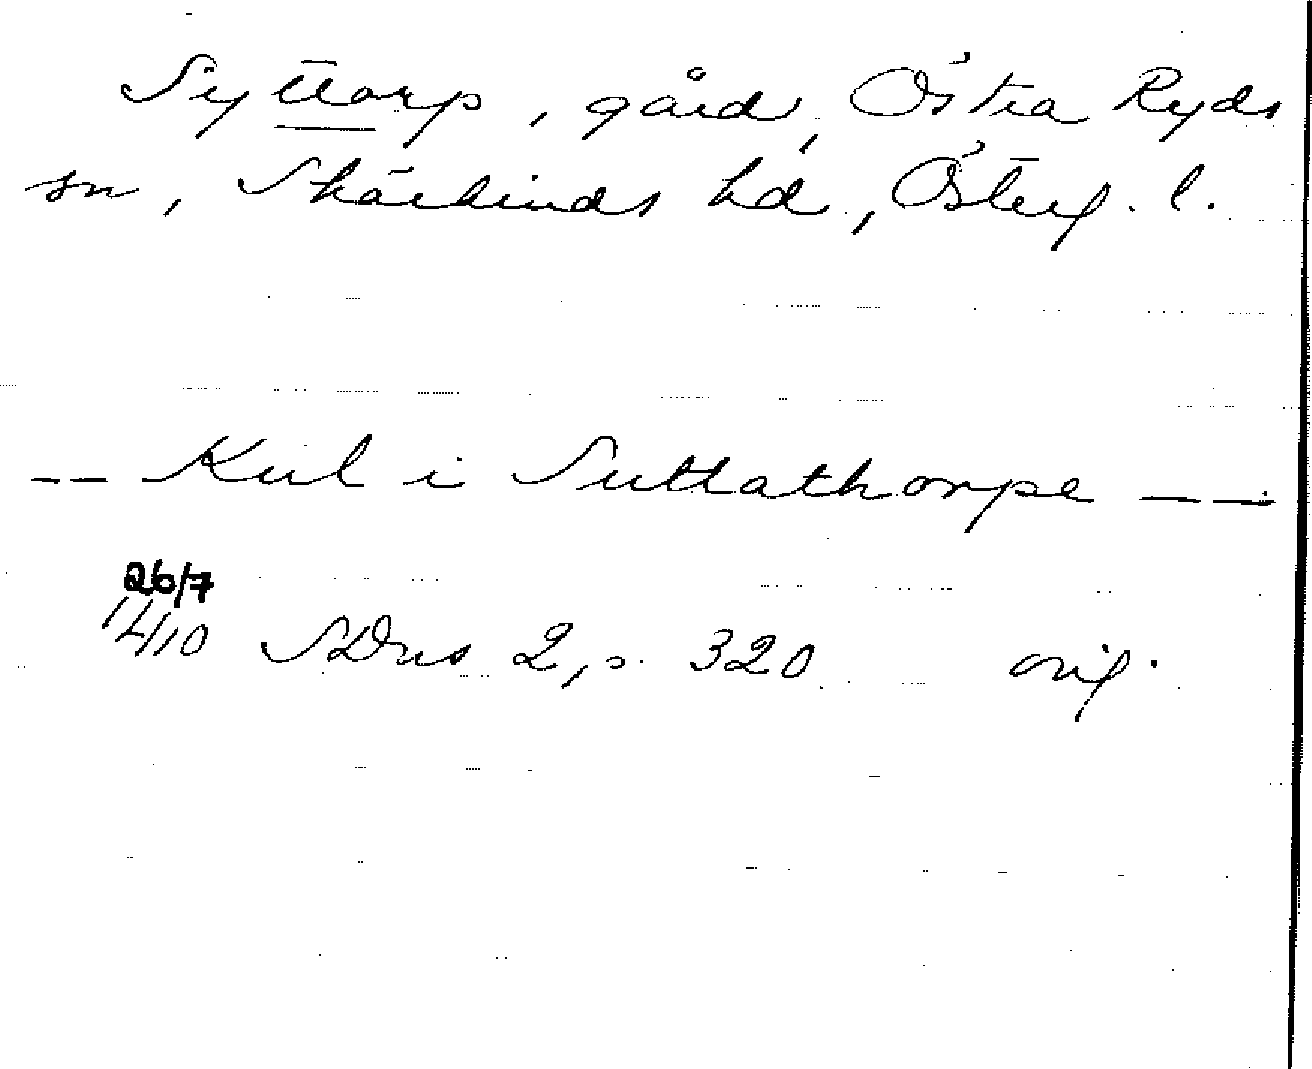 Syttorp, gård, Östra Ryds
sn, Skärkinds hd, Österg. l.
-- Kul i Suttathorpe --
26/7
1410 SDns 2, s. 320 orig.